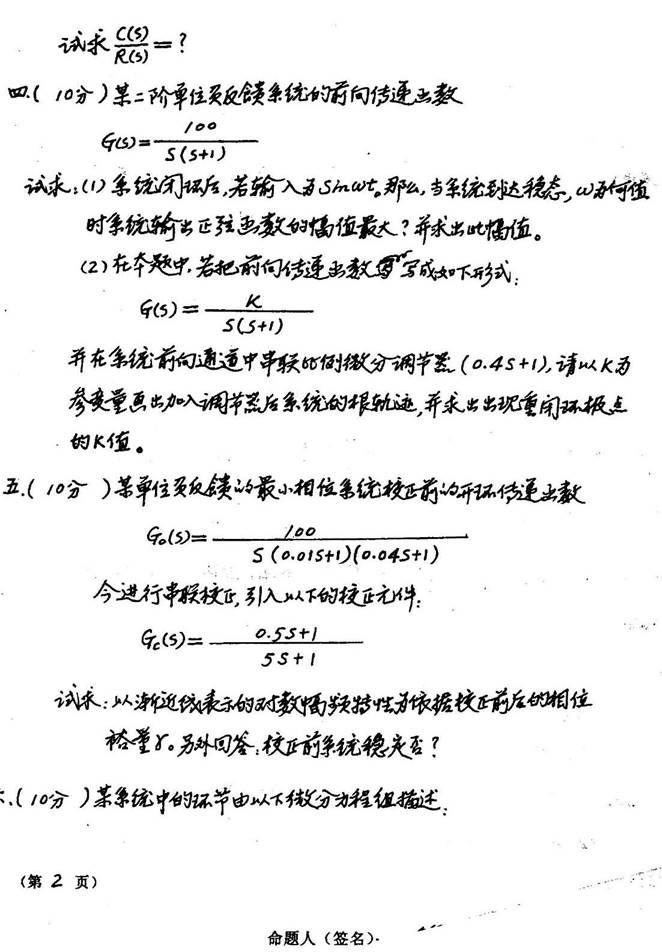 试求 C(S)/R(S) = ?
四.( 10分 )某二阶单位负反馈系统的前向传递函数
G(S)= 100 / S(S+1)
试求:(1) 系统闭环后,若输入为Sinωt。那么,当系统到达稳态,ω为何值
时系统输出正弦函数的幅值最大?并求出此幅值。
(2)在本题中,若把前向传递函数写成如下形式:
G(S) = K / S(S+1)
并在系统前向通道中串联比例微分调节器 (0.4S+1),请以K为
参变量画出加入调节器后系统的根轨迹,并求出出现重闭环极点
的K值。
五.( 10分 )某单位负反馈的最小相位系统校正前的开环传递函数
G₀(S)= 100 / S(0.01S+1)(0.04S+1)
今进行串联校正,引入以下的校正元件:
Gc(S)= 0.5S+1 / 5S+1
试求:以渐近线表示的对数幅频特性为依据校正前后的相位
裕量γ。另外回答:校正前系统稳定否?
.( 10分 )某系统中的环节由以下微分方程组描述:
(第 2 页)
命题人(签名)·